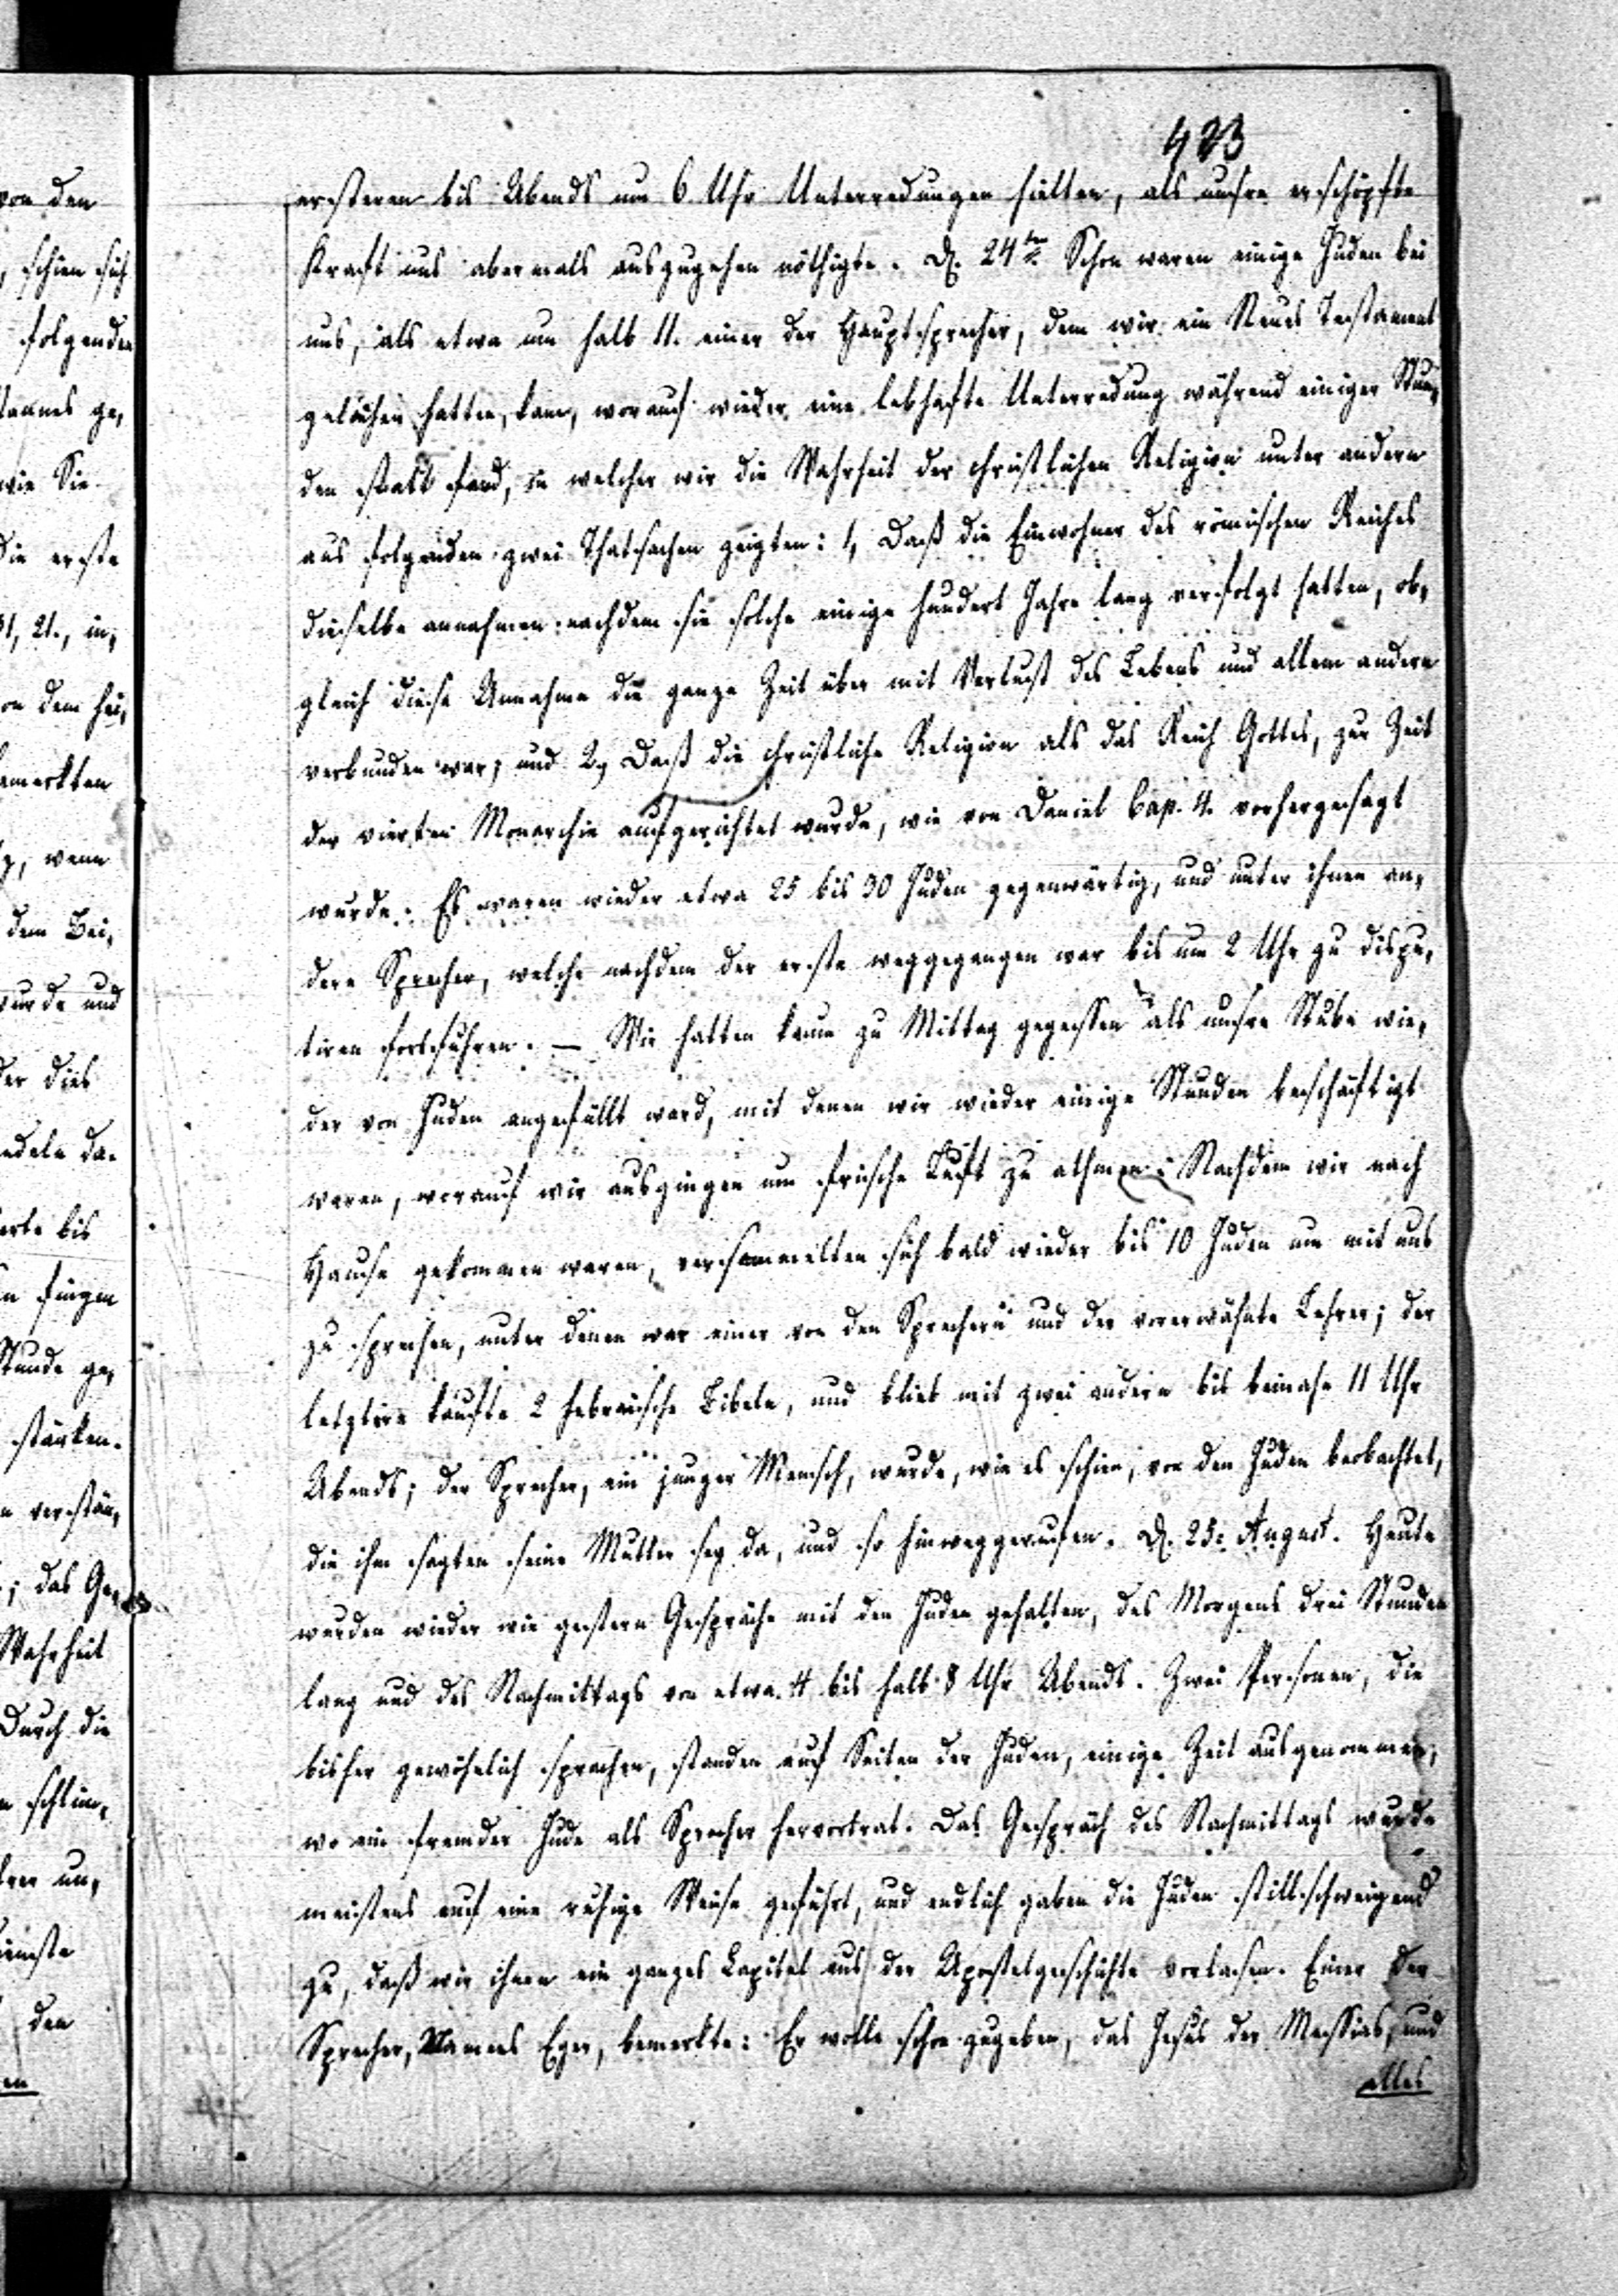 423
ersteren bis Abends um 6 Uhr Unterredungen hielten, als unsre erschöpfte
Kraft uns abermals auszugehen nöthigte. D. 24ten Schon waren einige Juden bei
uns, als etwa um halb 11. einer der Hauptsprecher, dem wir ein Neues Testament
geliehen hatten, kam, worauf wieder eine lebhafte Unterredung während einiger Stun,
den statt fand, in welcher wir die Wahrheit der christlichen Religion unter andern
aus folgenden zwei Thatsachen zeigten: 1, Daß die Einwohner des römischen Reiches
dieselbe annahmen nachdem sie solche einige hundert Jahre lang verfolgt hatten, ob,
gleich diese Annahme die ganze Zeit über mit Verlust des Lebens und allem andern
verbunden war; und 2, Daß die christliche Religion als das Reich Gottes, zur Zeit
der vierten Monarchie aufgerichtet wurde, wie von Daniel Cap. 4. vorhergesagt
wurde. Es waren wieder etwa 25 bis 30 Juden gegenwärtig, und unter ihnen an,
dere Sprecher, welche nachdem der erste weggegangen war bis um 2 Uhr zu dispu,
tiren fortfuhren. — Wir hatten kaum zu Mittag gegessen als unsre Stube wie,
der von Juden angefüllt ward, mit denen wir wieder einige Stunden beschäftigt
waren, worauf wir ausgingen um frische Luft zu athmen. Nachdem wir nach
Hause gekommen waren, versammelten sich bald wieder bis 10 Juden um mit uns
zu sprechen, unter denen war einer von den Sprechern und der vorerwähnte Lehrer; der
letztere kaufte 2 hebräische Bibeln, und blieb mit zwei andern bis beinahe 11 Uhr
Abends; der Sprecher, ein junger Mensch, wurde, wie es schien, von den Juden beobachtet,
die ihm sagten seine Mutter sey da, und so hinweggerufen. D. 25. August. Heute
wurden wieder wie gestern Gespräche mit den Juden gehalten, des Morgens drei Stunden
lang und des Nachmittags von etwa 4 bis halb 8 Uhr Abends. Zwei Personen, die
bisher gewöhnlich sprachen, standen auf Seiten der Juden, einige Zeit ausgenommen,
wo ein fremder Jude als Sprecher hervortrat. Das Gespräch des Nachmittags wurde
meistens auf eine ruhige Weise geführt, und endlich gaben die Juden stillschweigend
zu, daß wir ihnen ein ganzes Capitel aus der Apostelgeschichte vorlasen. Einer der
Sprecher, Namens Eger, bemerkte: Er wolle schon zugeben, das Jesus der Messias, und
alles